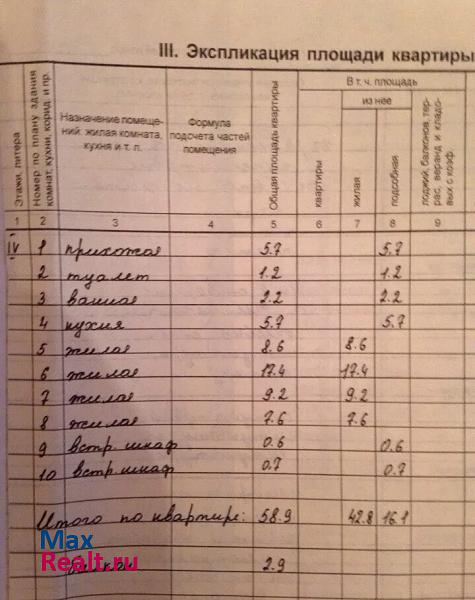 III. Экспликация площади квартиры
Этажи, литера
Номер по плану здания комнат, кухни, корид. и пр.
Назначение помеще-
ний: жилая комната,
кухня и т. п.
Формула
подсчета частей
помещения
Общая площадь квартиры
В т. ч. площадь
из нее
квартиры
жилая
подсобная
лоджий, балконов, тер-
рас, веранд и кладо-
вых с коэф.
1 2 3 4 5 6 7 8 9
IV 1 прихожая 5.7 5.7
2 туалет 1.2 1.2
3 ванная 2.2 2.2
4 кухня 5.7 5.7
5 жилая 8.6 8.6
6 жилая 17.4 17.4
7 жилая 9.2 9.2
8 жилая 7.6 7.6
9 встр. шкаф 0.6 0.6
10 встр. шкаф 0.7 0.7
Итого по квартире: 58.9 42.8 16.1
Max
Realt.ru
2.9